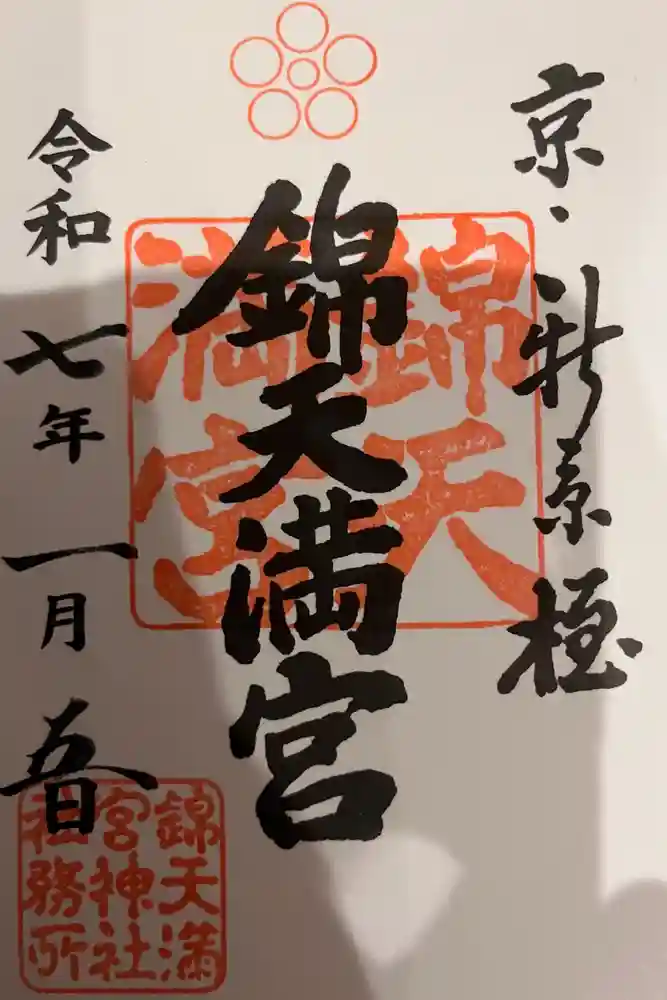 京・新京極
錦天満宮
錦天
満宮
令和七年一月五日
錦天満
宮神社
社務所